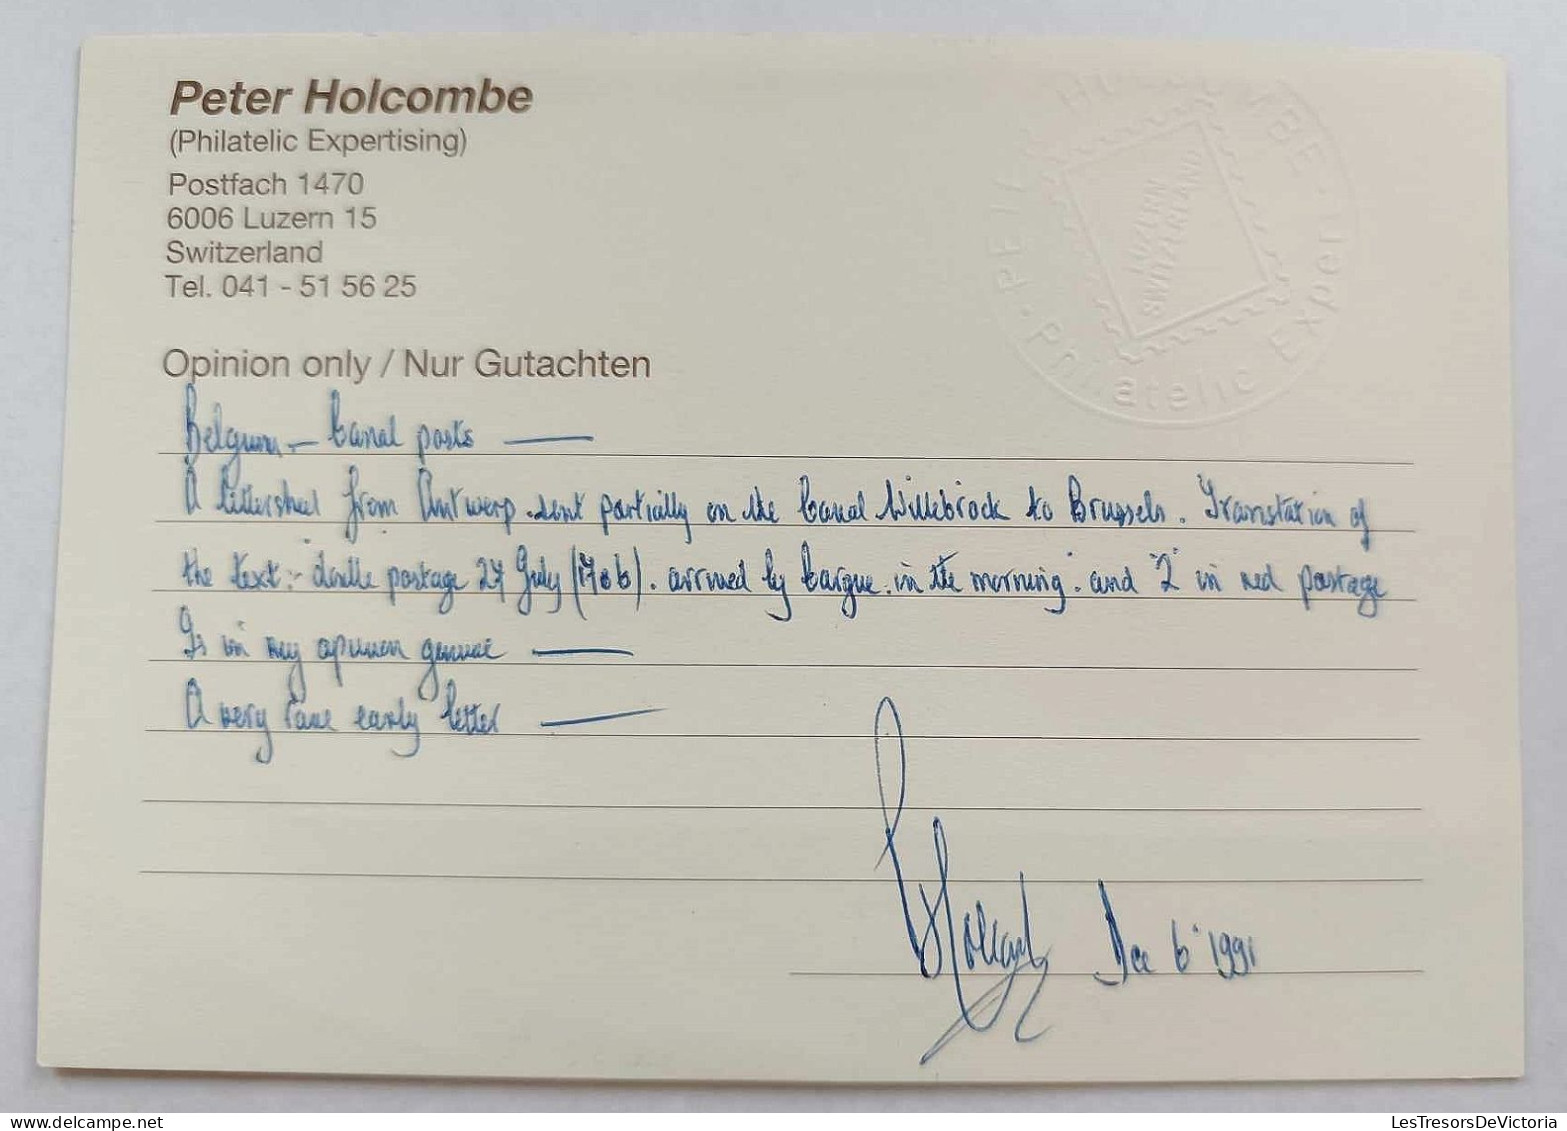 Peter Holcombe
(Philatelic Expertising)
Postfach 1470
6006 Luzern 15
Switzerland
Tel. 041 - 51 56 25
PETER HOLCOMBE · Philatelic Expert ·
LUZERN
SWITZERLAND
Opinion only / Nur Gutachten
Belgium – Canal posts —
A lettersheet from Antwerp sent partially on the Canal Willebrock to Brussels. Translation of
the text :- "double postage 27 July (1706). arrived by bargue in the morning" and "2" in red postage
Is in my opinion genuine —
A very rare early letter —
Dec 6 1991
LesTresorsDeVictoria